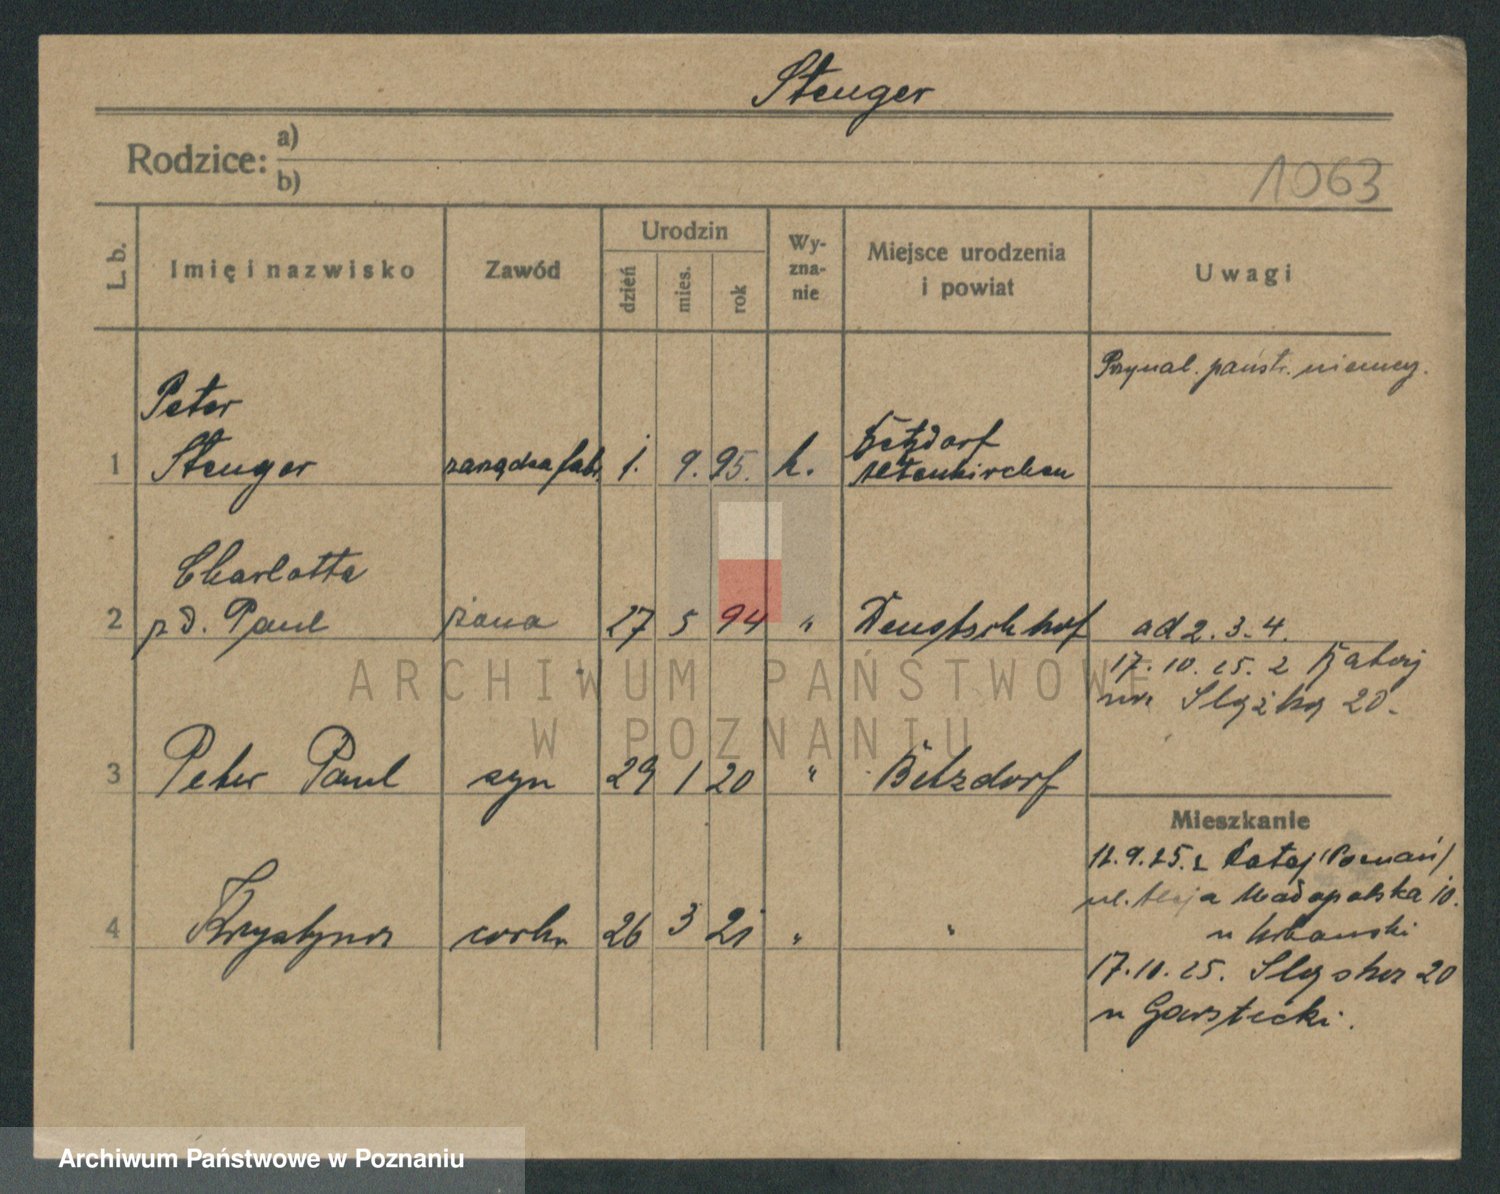 Stenger
Rodzice: a)
b)
1063
L. b.
Imię i nazwisko
Zawód
Urodzin
dzień
mies.
rok
Wy-
zna-
nie
Miejsce urodzenia
i powiat
Uwagi
Przynal. państ. niemcy.
Peter
1 Stenger zarządca fabr. 1. 9. 95. k. Betzdorf
Altenkirchen
Charlotte
2 z d. Paul żona 27 5 94 " Deutschhof ad 2. 3. 4.
17. 10. 25. z
20.
3 Peter Paul syn 29 1 20 " Betzdorf
Mieszkanie
4 Krystyna córka 26 3 21 " "
12. 9. 25. z Rataj (Poznań)
ul. Małopolska 10.
u Urbański
17. 10. 25. 20
u Garstecki.
ARCHIWUM PAŃSTWOWE
W POZNANIU
Archiwum Państwowe w Poznaniu